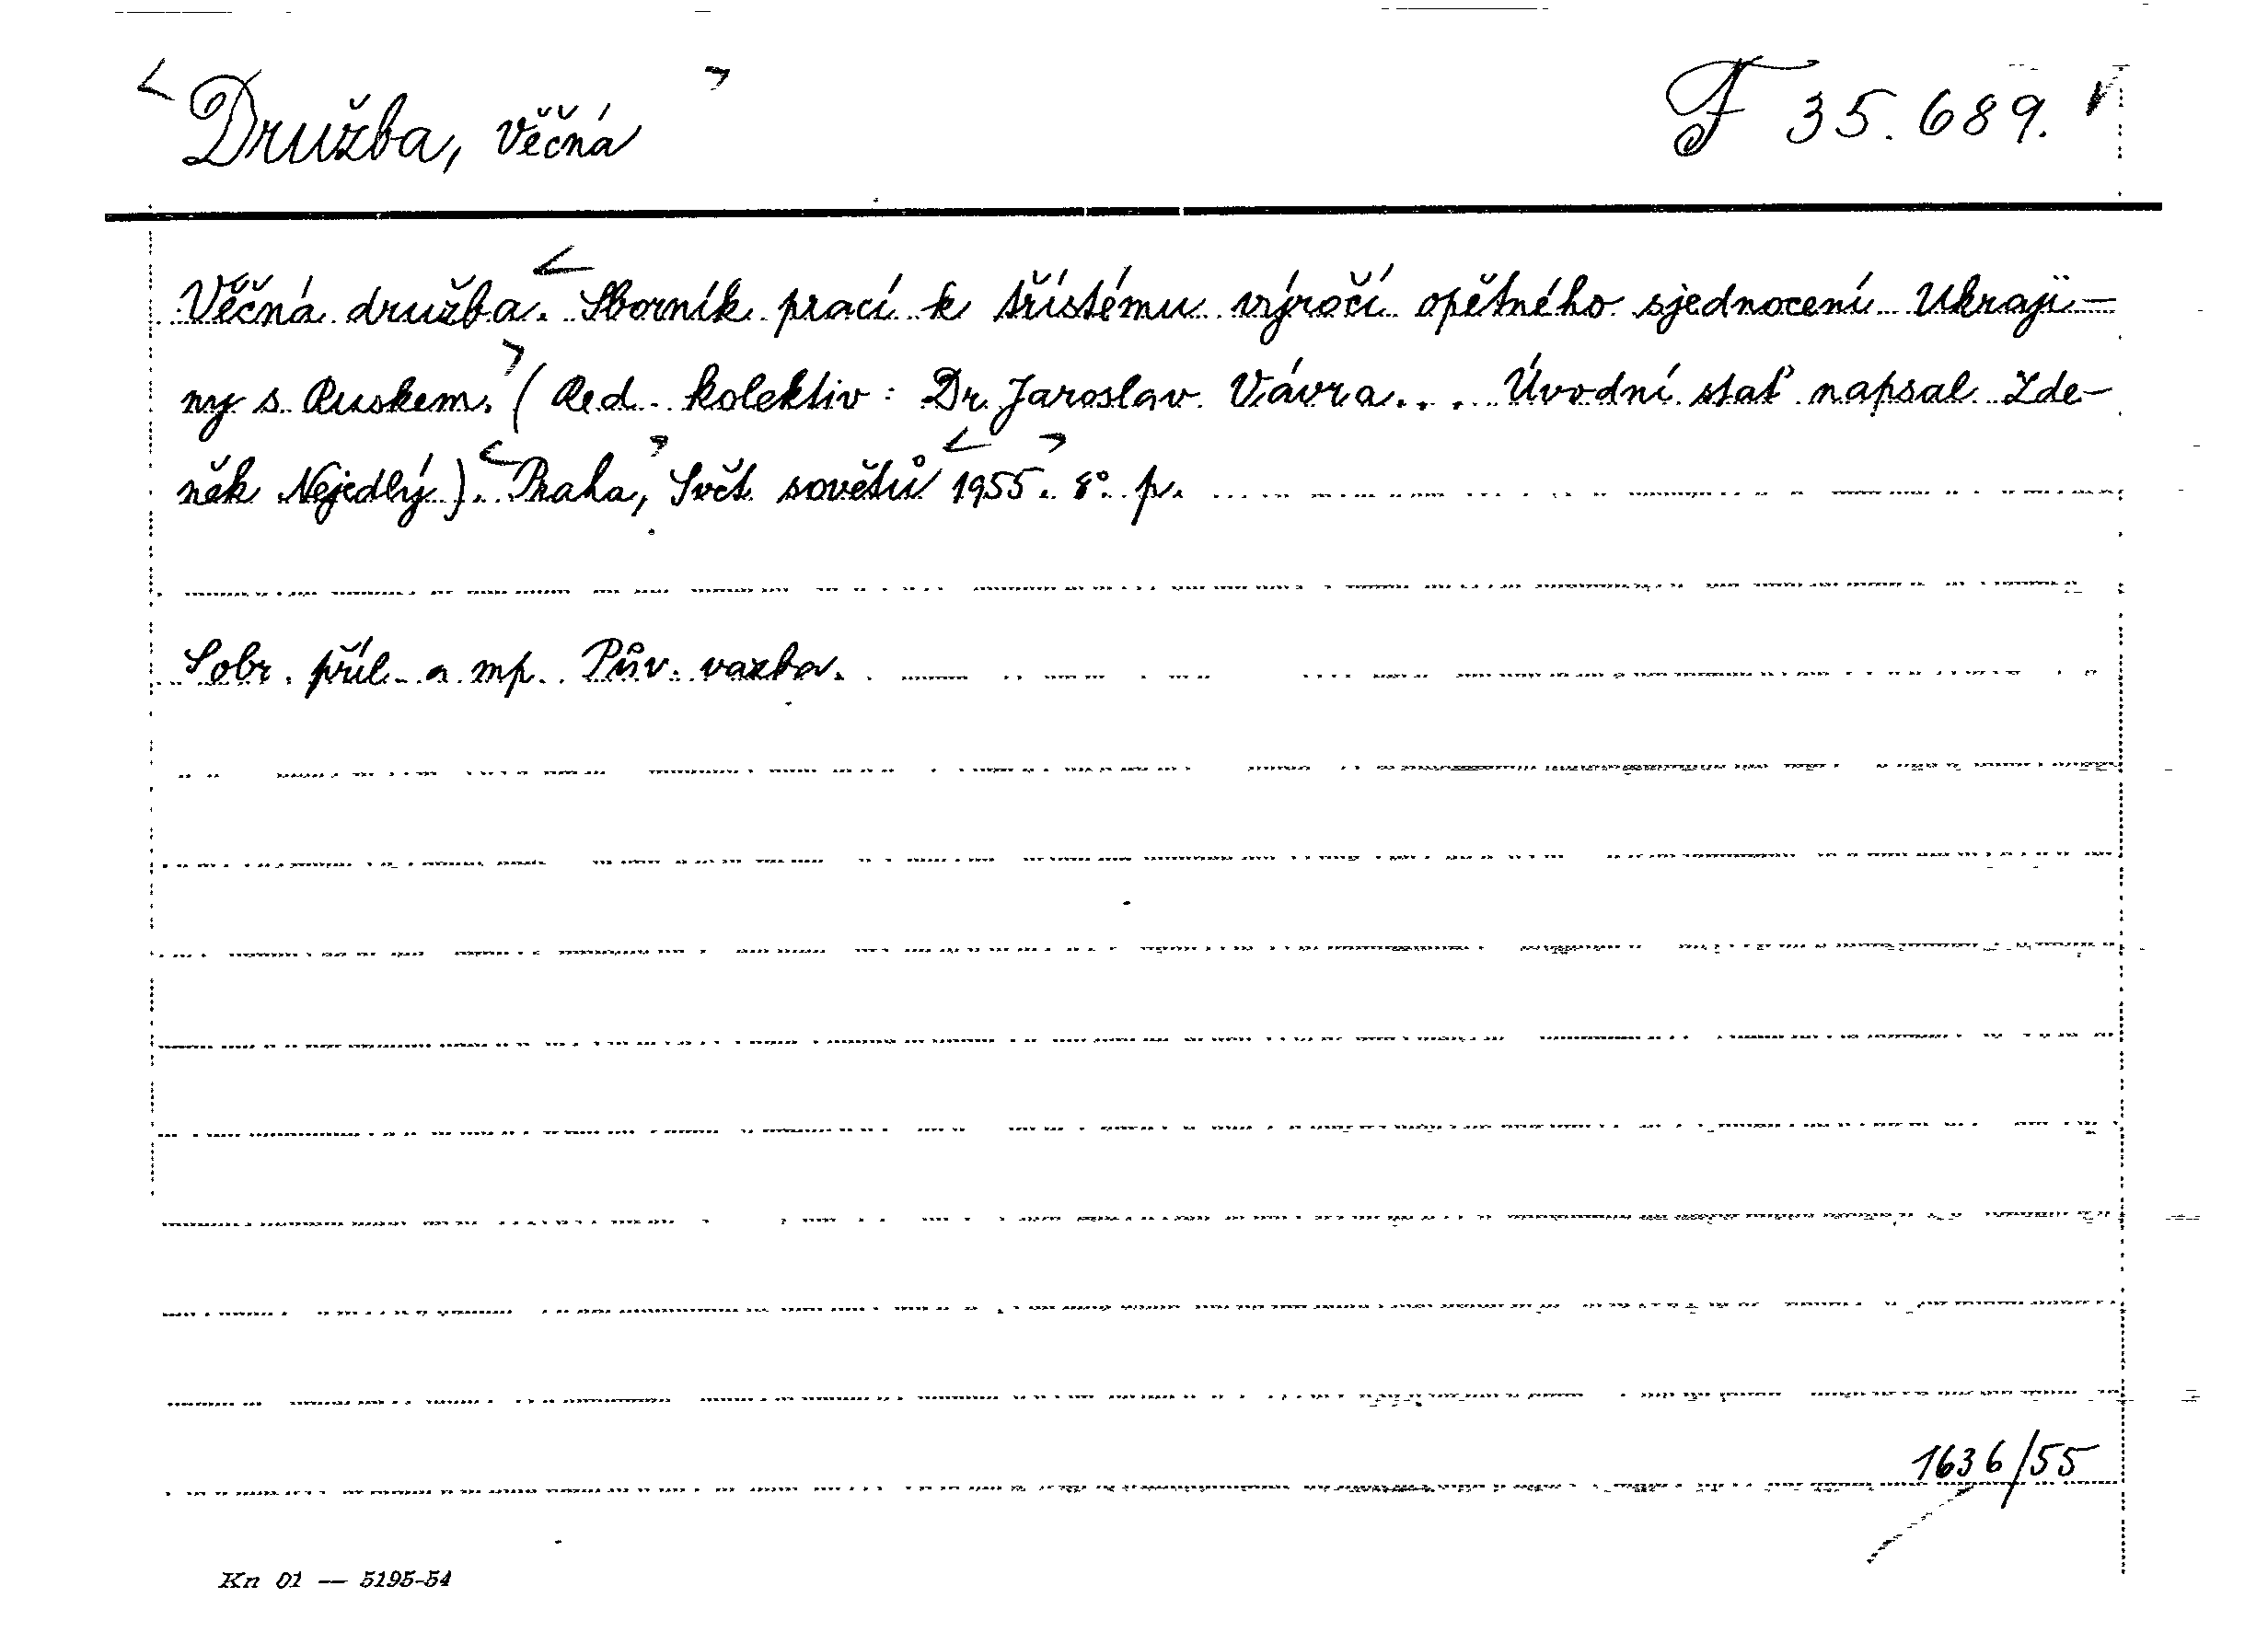 < Družba, věčná > F 35.689.
Věčná družba. < Sborník prací k třístému výročí opětného sjednocení Ukraji-
ny s Ruskem. > (Red. kolektiv: Dr. Jaroslav Vávra... Úvodní stať napsal Zde-
něk Nejedlý). < Praha, > Svět sovětů < 1955. > 8°. p.
S obr. příl. a mp. Pův. vazba.
1636/55
Kn 01 — 5195-54